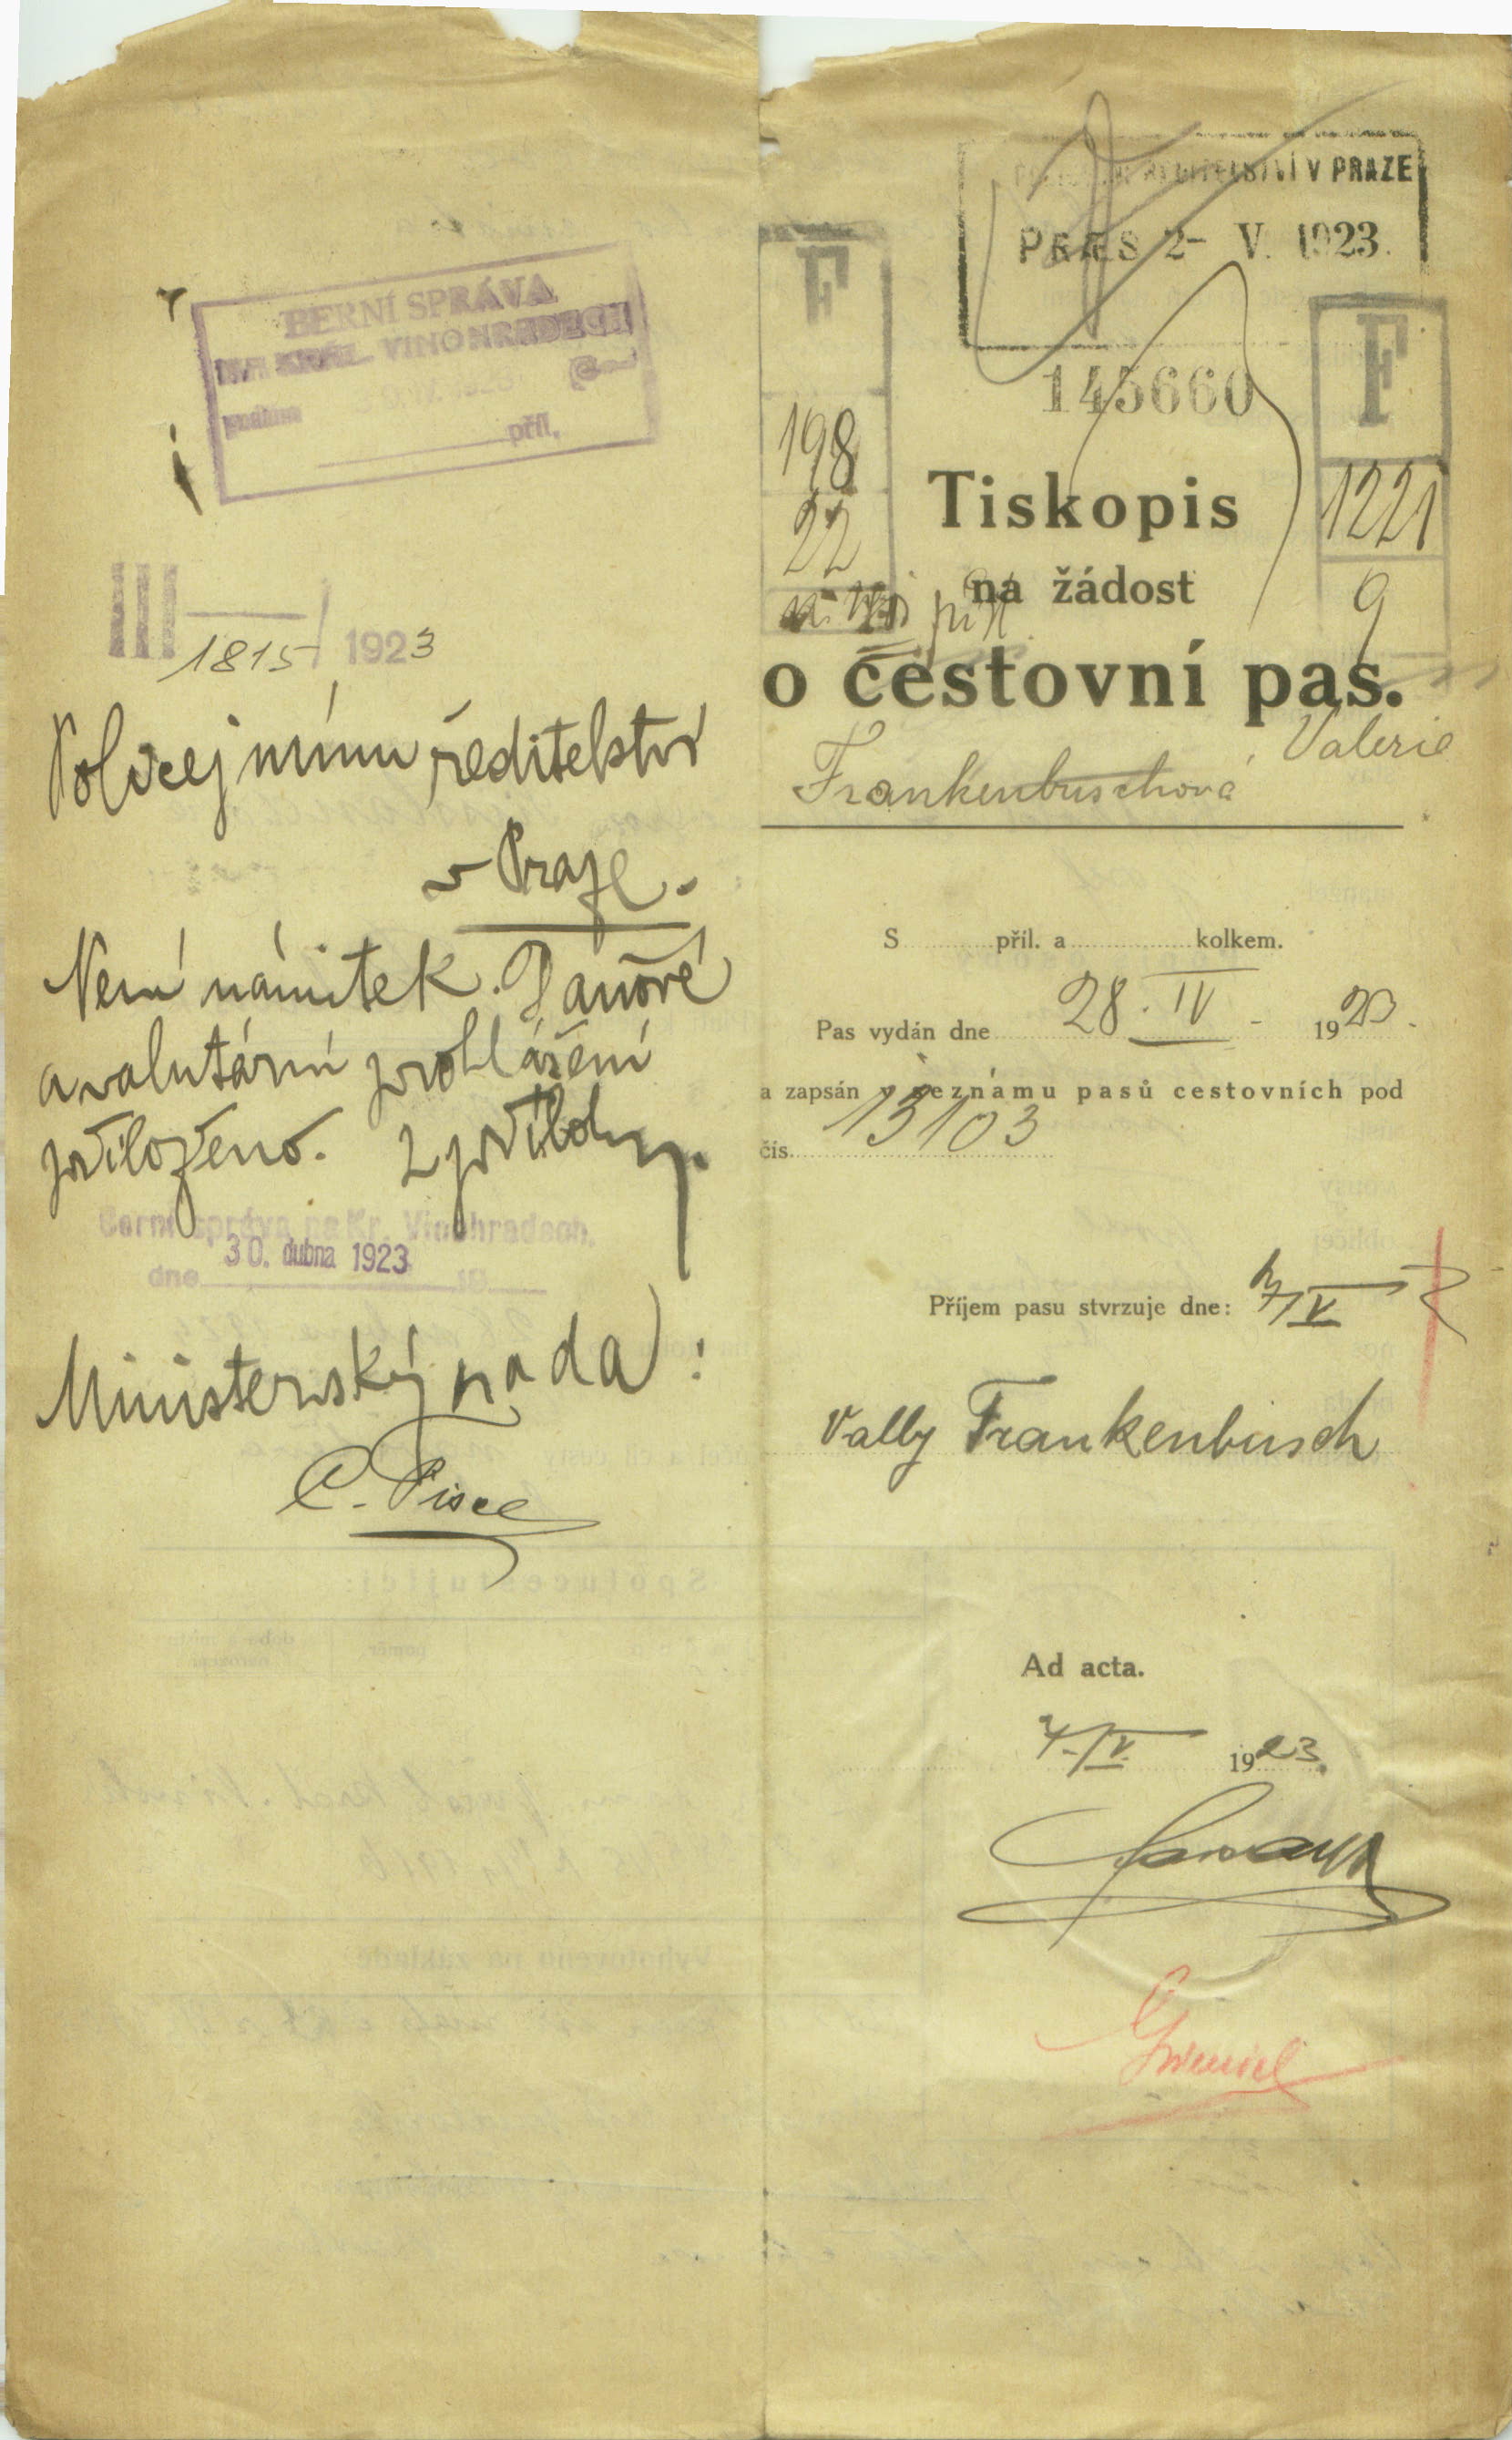 BERNÍ SPRÁVA
NA KRÁL. VINOHRADECH
příl.
III 1815/1923
Policejnímu ředitelství
v Praze.
Není námitek. Daňové
a valutární prohlášení
přiloženo. 2 přílohy.
Berní správa na Kr. Vinohradech.
dne 30. dubna 1923 19
Ministerský rada:
POLICEJNÍ ŘEDITELSTVÍ V PRAZE
PRAES 2- V. 1923.
145660
F
198
22
F
1221
9
Tiskopis
na žádost
o cestovní pas.
Frankenbuschová Valerie
S příl. a kolkem.
Pas vydán dne 28. IV 1923.
a zapsán v seznamu pasů cestovních pod
čís. 13103
Příjem pasu stvrzuje dne: 4/V
Vally Frankenbusch
Ad acta.
4./V. 1923.